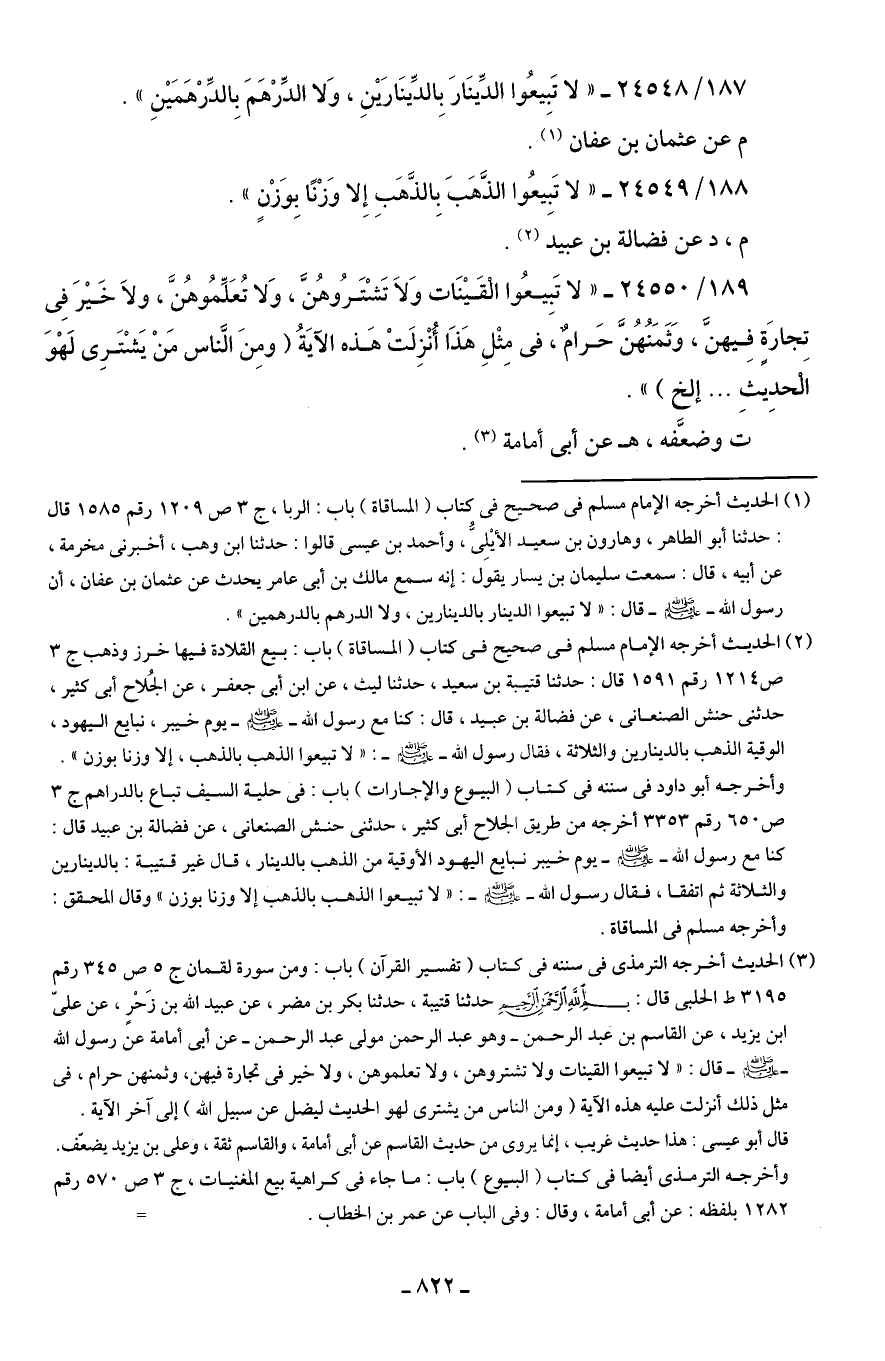 ٢٤٥٤٨/١٨٧ ـ « لا تَبِيعُوا الدِّينَارَ بِالدِّينَارَيْنِ ، وَلا الدِّرْهَمَ بِالدِّرْهَمَيْنِ » .
م عن عثمان بن عفان (١) .
٢٤٥٤٩/١٨٨ ـ « لا تَبِيعُوا الذَّهَبَ بِالذَّهَبِ إِلا وَزْنًا بِوَزْنٍ » .
م ، د عن فضالة بن عبيد (٢) .
٢٤٥٥٠/١٨٩ ـ « لا تَبِيعُوا الْقَيْنَات وَلاَ تَشْتَرُوهُنَّ ، وَلا تُعَلِّمُوهُنَّ ، ولاَ خَيْرَ فِى
تِجارَةٍ فِيهنَّ ، وَثَمَنُهُنَّ حَرامٌ ، فى مِثْلِ هَذَا أُنْزِلَتْ هَذه الآيَةُ ( ومِنَ النَّاس مَنْ يَشْتَرِى لَهْوَ
الْحديِثِ ... إلخ ) » .
ت وضعَّفه ، هـ عن أبى أمامة (٣) .
(١) الحديث أخرجه الإمام مسلم فى صحيح فى كتاب ( المساقاة ) باب : الربا ، ج ٣ ص ١٢٠٩ رقم ١٥٨٥ قال
: حدثنا أبو الطاهر ، وهارون بن سعيد الأيْلىُّ ، وأحمد بن عيسى قالوا : حدثنا ابن وهب ، أخبرنى مخرمة ،
عن أبيه ، قال : سمعت سليمان بن يسار يقول : إنه سمع مالك بن أبى عامر يحدث عن عثمان بن عفان ، أن
رسول الله ـ ﷺ ـ قال : « لا تبيعوا الدينار بالدينارين ، ولا الدرهم بالدرهمين » .
(٢) الحديث أخرجه الإمام مسلم فى صحيح فى كتاب ( المساقاة ) باب : بيع القلادة فيها خرز وذهب ج ٣
ص١٢١٤ رقم ١٥٩١ قال : حدثنا قتيبة بن سعيد ، حدثنا ليث ، عن ابن أبى جعفر ، عن الجُلاح أبى كثير ،
حدثنى حنش الصنعانى ، عن فضالة بن عبيد ، قال : كنا مع رسول الله ـ ﷺ ـ يوم خيبر ، نبايع اليهود ،
الوقية الذهب بالدينارين والثلاثة ، فقال رسول الله ـ ﷺ ـ : « لا تبيعوا الذهب بالذهب ، إلا وزنا بوزن » .
وأخرجه أبو داود فى سننه فى كتاب ( البيوع والإجارات ) باب : فى حلية السيف تباع بالدراهم ج ٣
ص٦٥٠ رقم ٣٣٥٣ أخرجه من طريق الجلاح أبى كثير ، حدثنى حنش الصنعانى ، عن فضالة بن عبيد قال :
كنا مع رسول الله ـ ﷺ ـ يوم خيبر نبايع اليهود الأوقية من الذهب بالدينار ، قال غير قتيبة : بالدينارين
والثلاثة ثم اتفقا ، فقال رسول الله ـ ﷺ ـ : « لا تبيعوا الذهب بالذهب إلا وزنا بوزن » وقال المحقق :
وأخرجه مسلم فى المساقاة .
(٣) الحديث أخرجه الترمذى فى سننه فى كتاب ( تفسير القرآن ) باب : ومن سورة لقمان ج ٥ ص ٣٤٥ رقم
٣١٩٥ ط الحلبى قال : بسم الله الرحمن الرحيم حدثنا قتيبة ، حدثنا بكر بن مضر ، عن عبيد الله بن زَحْرٍ ، عن علىّ
ابن يزيد ، عن القاسم بن عبد الرحمن ـ وهو عبد الرحمن مولى عبد الرحمن ـ عن أبى أمامة عن رسول الله
ـ ﷺ ـ قال : « لا تبيعوا القينات ولا تشتروهن ، ولا تعلموهن ، ولا خير فى تجارة فيهن، وثمنهن حرام ، فى
مثل ذلك أنزلت عليه هذه الآية ( ومن الناس من يشترى لهو الحديث ليضل عن سبيل الله ) إلى آخر الآية .
قال أبو عيسى : هذا حديث غريب ، إنما يروى من حديث القاسم عن أبى أمامة ، والقاسم ثقة ، وعلى بن يزيد يضعّف.
وأخرجه الترمذى أيضا فى كتاب ( البيوع ) باب : ما جاء فى كراهية بيع المغنيات ، ج ٣ ص ٥٧٠ رقم
١٢٨٢ بلفظه : عن أبى أمامة ، وقال : وفى الباب عن عمر بن الخطاب . =
ـ ٨٢٢ ـ